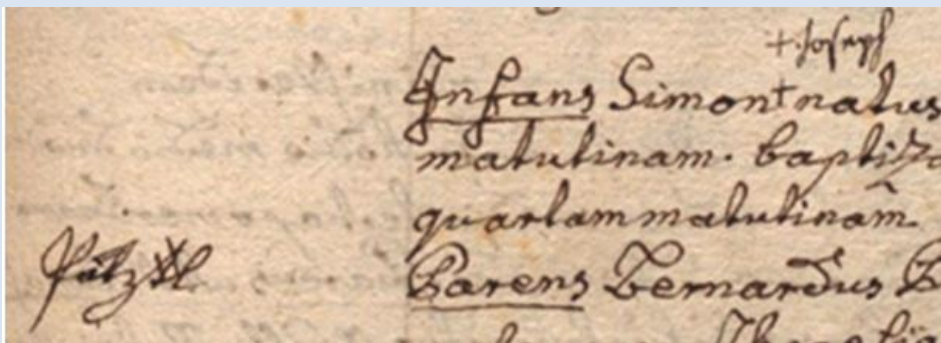 + Joseph
Infans Simon + natus
matutinam. baptiza
quartam matutinam.
Parens Bernardus B